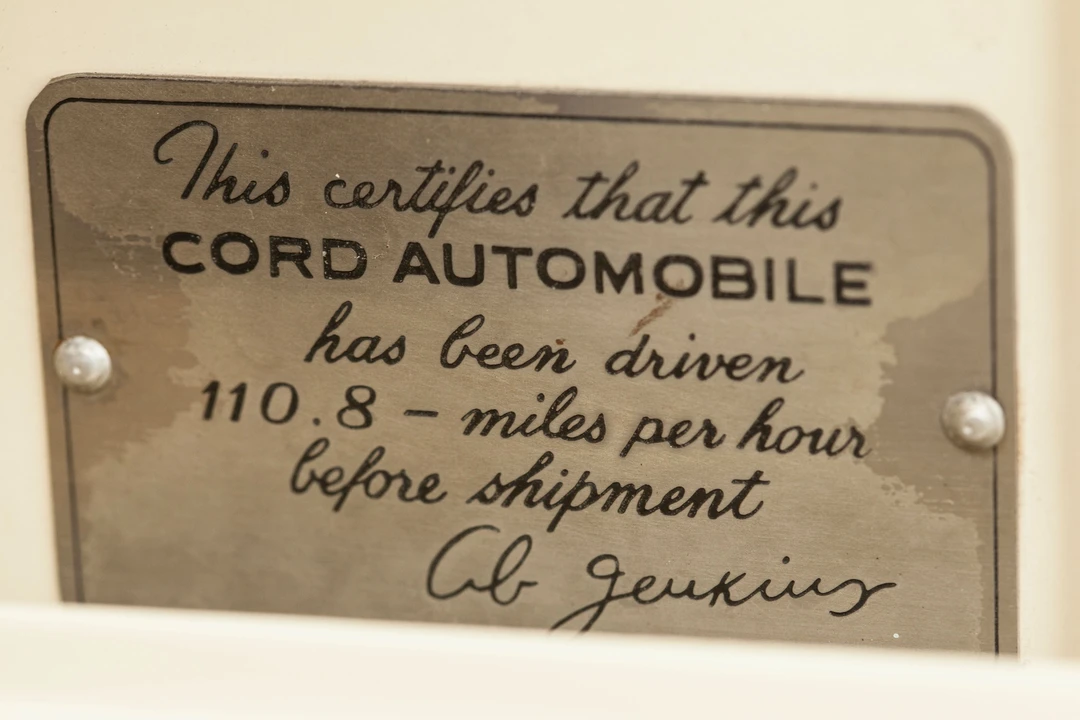 This certifies that this
CORD AUTOMOBILE
has been driven
110.8 – miles per hour
before shipment
Ab Jenkins